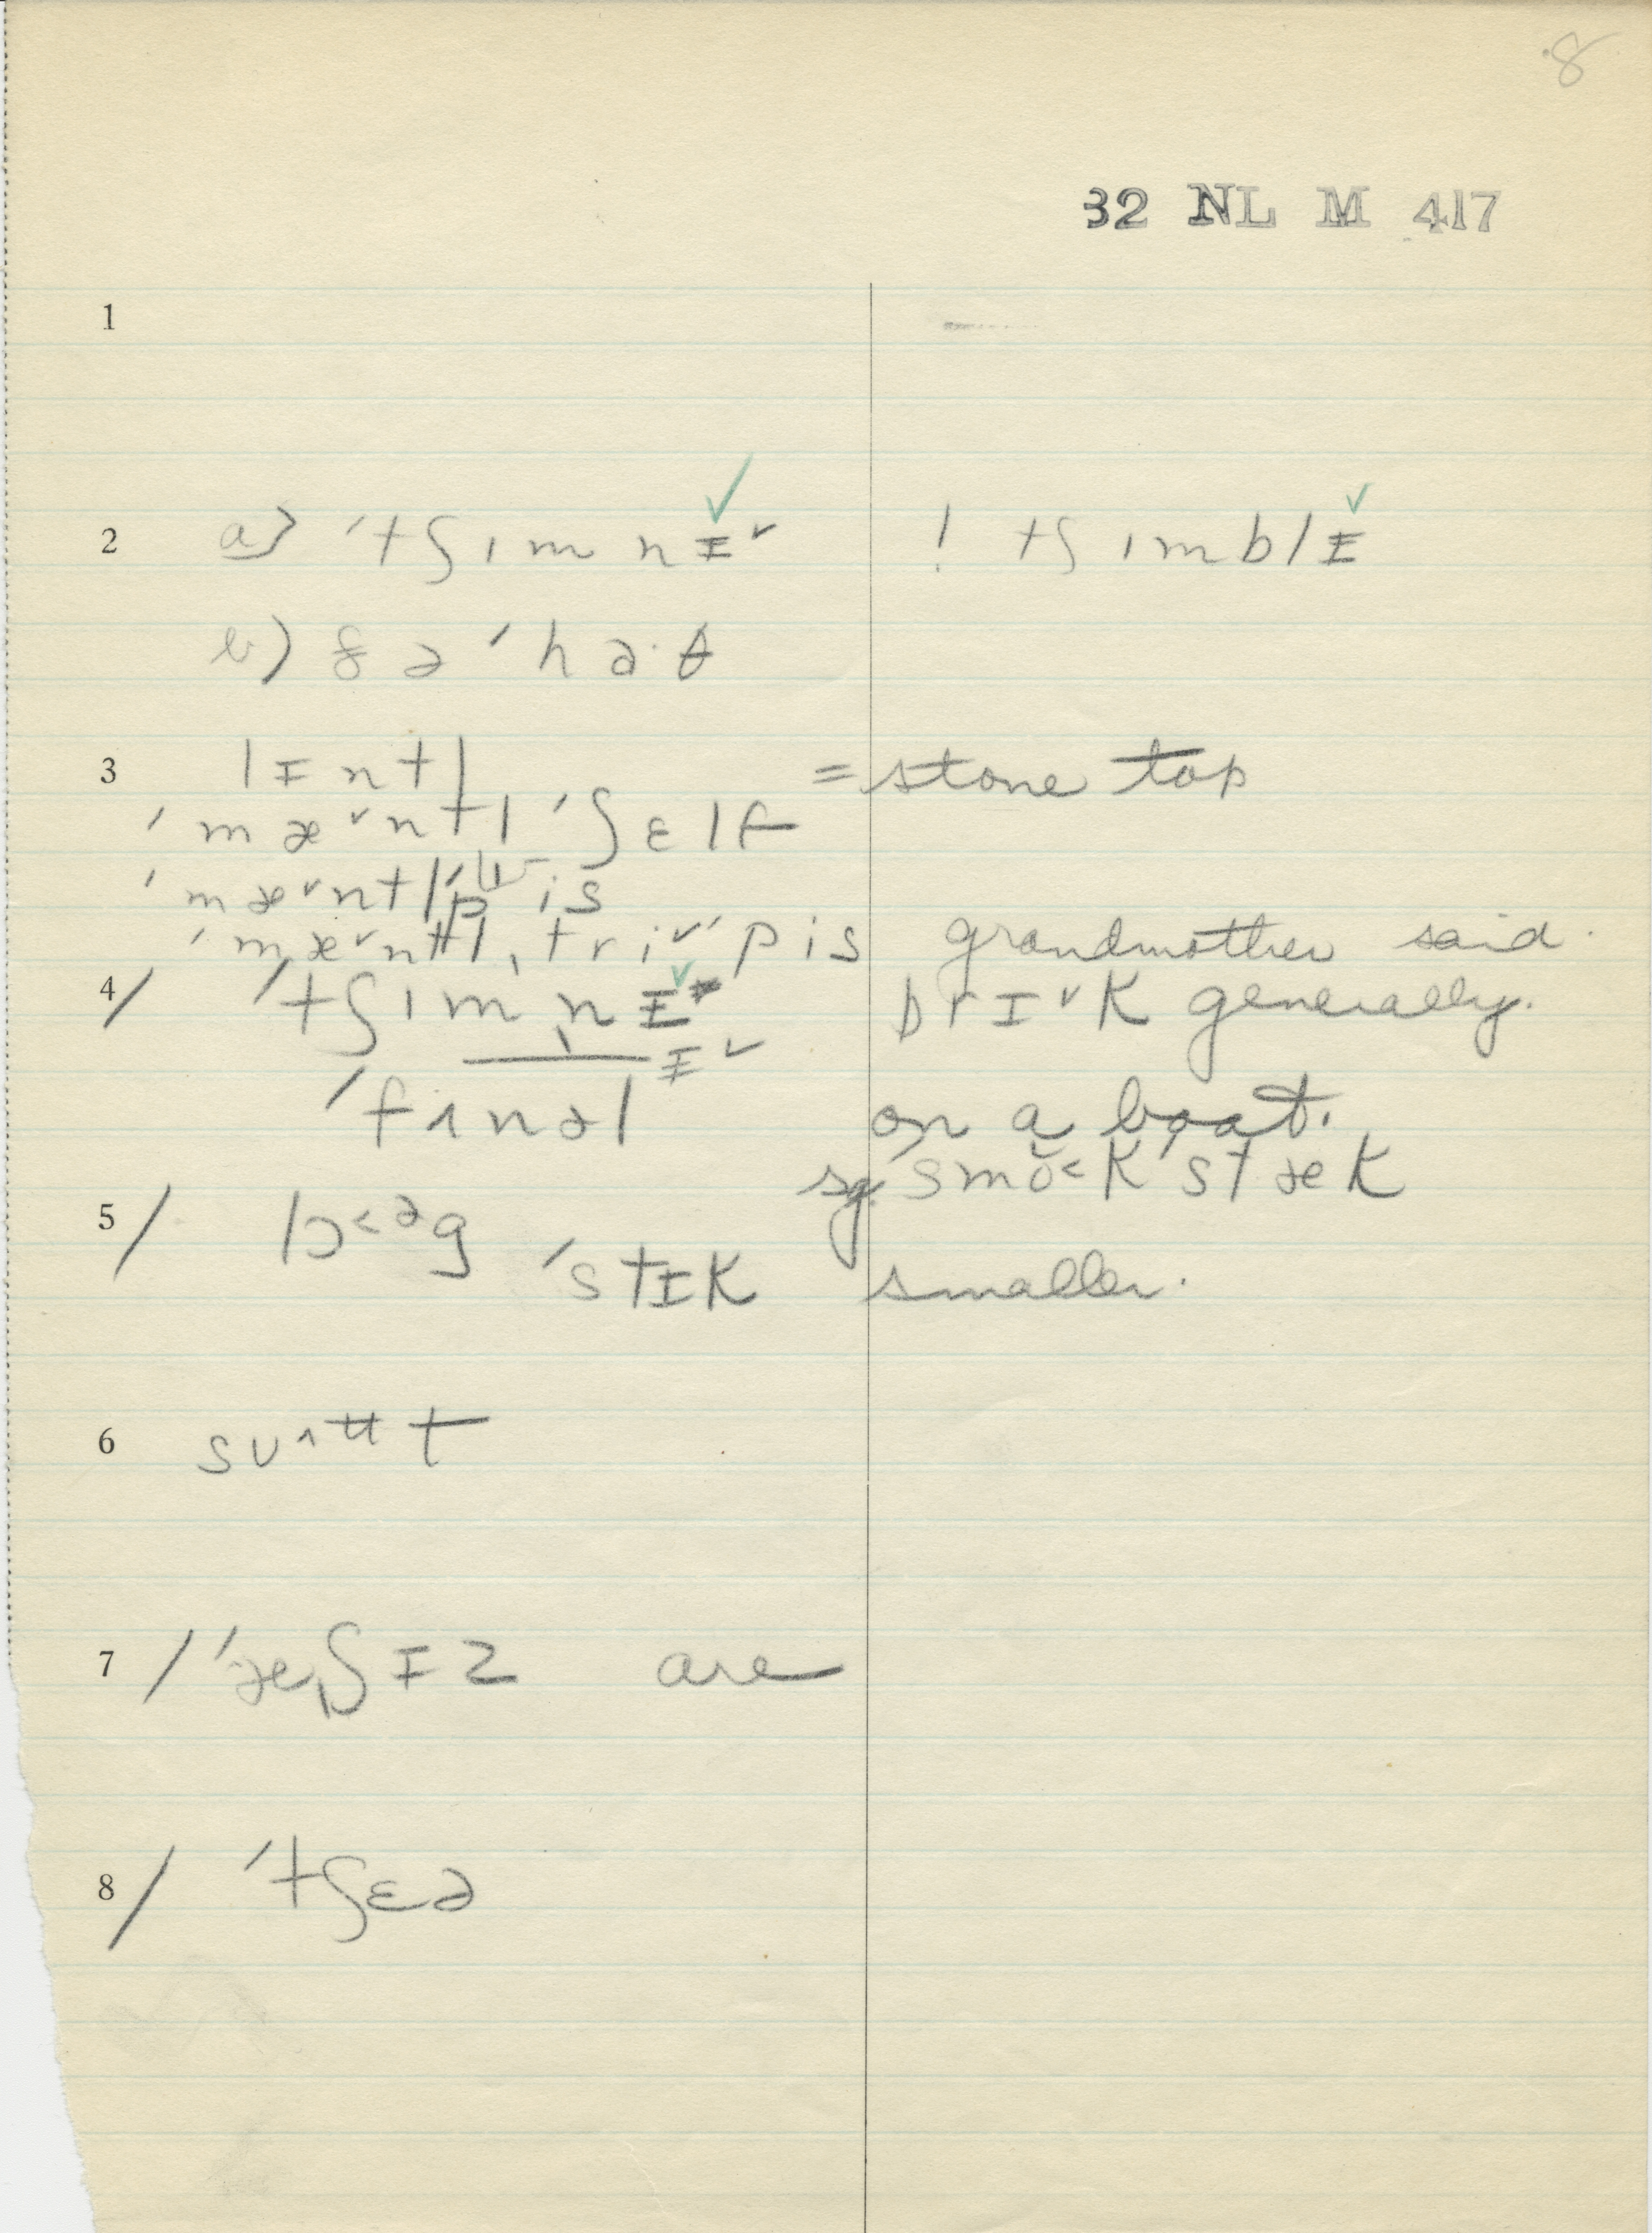 8
32 NL M 417
1
2 a) ˈtʃɪmnɪ˅ ! tʃɪmblɪ
b) ðəˈhaˑθ
3 lɪntl = stone top
ˈmæ˅ntl ˈʃɛlf
ˈmæ˅ntlˈpis
ˈmæ˅ntl ˌtri˅ˈpis grandmother said.
4/ ˈtʃɪmnɪ brɪ˅k generally.
ɪ˅
ˈfʌnəl on a boat.
sg. smo˂kˈstæk
5/ lɔ˂əg
ˈstɪk smaller.
6 sʊt
7 / ˈæʃɪz are
8 / ˈtʃɛə